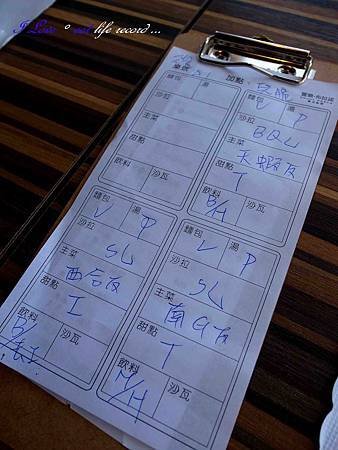 I Love ° eat life record ...
桌號
加點
麵包 湯
沙拉
主菜
甜點
飲料 沙瓦
麵包 湯
V P
沙拉
BQL
主菜
天蝦友
甜點
T
飲料 沙瓦
B/H
麵包 湯
V P
沙拉
SL
主菜
西谷友
甜點
I
飲料 沙瓦
麵包 湯
V P
沙拉
SL
主菜
南瓜友
甜點
T
飲料 沙瓦
M/H